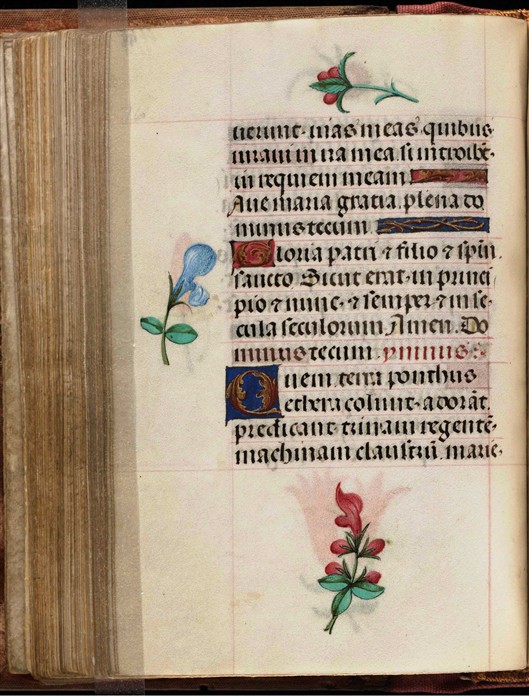 uerunt. uias meas quibus
iuraui in ira mea si introibt.
in requiem meam.
Aue maria gratia plena do
minus tecum.
Gloria patri ⁊ filio ⁊ spiri
sancto Sicut erat. in princi
pio ⁊ nunc. ⁊ semper ⁊ in se
cula seculorum. Amen. Do
minus tecum. ymnus:
Quem. terra ponthus
ethera colunt. adorāt.
predicant. trinam regentē.
machinam claustrū. marie.